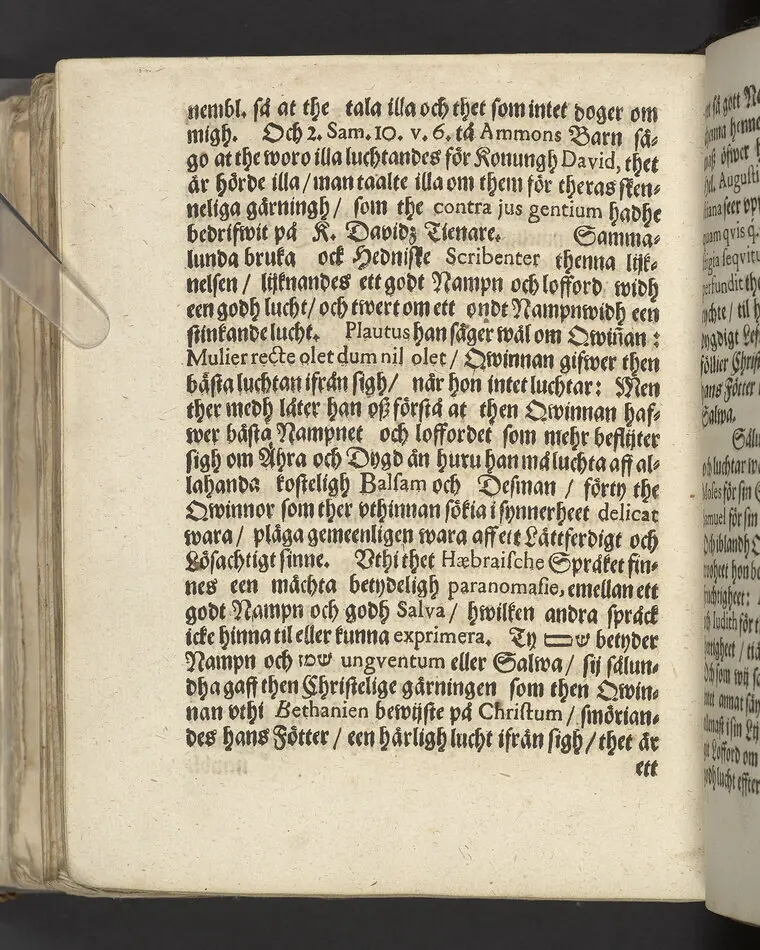 nembl. så at the tala illa och thet som intet doger om
migh. Och 2. Sam. 10. v. 6. tå Ammons Barn så-
go at the woro illa luchtandes för Konungh David, thet
är hörde illa / man taalte illa om them för theras sken-
neliga gärningh / som the contra jus gentium hadhe
bedrifwit på K. Davidz Tienare. Samma-
lunda bruka ock Hedniske Scribenter thenna lijk-
nelsen / lijknandes ett godt Nampn och lofford widh
een godh lucht / och twert om ett ondt Nampn widh een
stinkande lucht. Plautus han säger wäl om Qwiñan :
Mulier recte olet dum nil olet / Qwinnan gifwer then
bästa luchtan ifrån sigh / när hon intet luchtar: Men
ther medh låter han oß förstå at then Qwinnan haf-
wer bästa Nampnet och loffordet som mehr beflijter
sigh om Ähra och Dygd än huru han må luchta aff al-
lahanda kosteligh Balsam och Desman / förty the
Qwinnor som ther vthinnan sökia i synnerheet delicat
wara / pläga gemeenligen wara aff ett Lättferdigt och
Lösachtigt sinne. Vthi thet Hæbraische Språket fin-
nes een mächta betydeligh paranomasie, emellan ett
godt Nampn och godh Salva / hwilken andra språck
icke hinna til eller kunna exprimera. Ty שם betyder
Nampn och שמן ungventum eller Salwa / sij sålun-
dha gaff then Christelige gärningen som then Qwin-
nan vthi Bethanien bewijste på Christum / smörian-
des hans Fötter / een härligh lucht ifrån sigh / thet är
ett